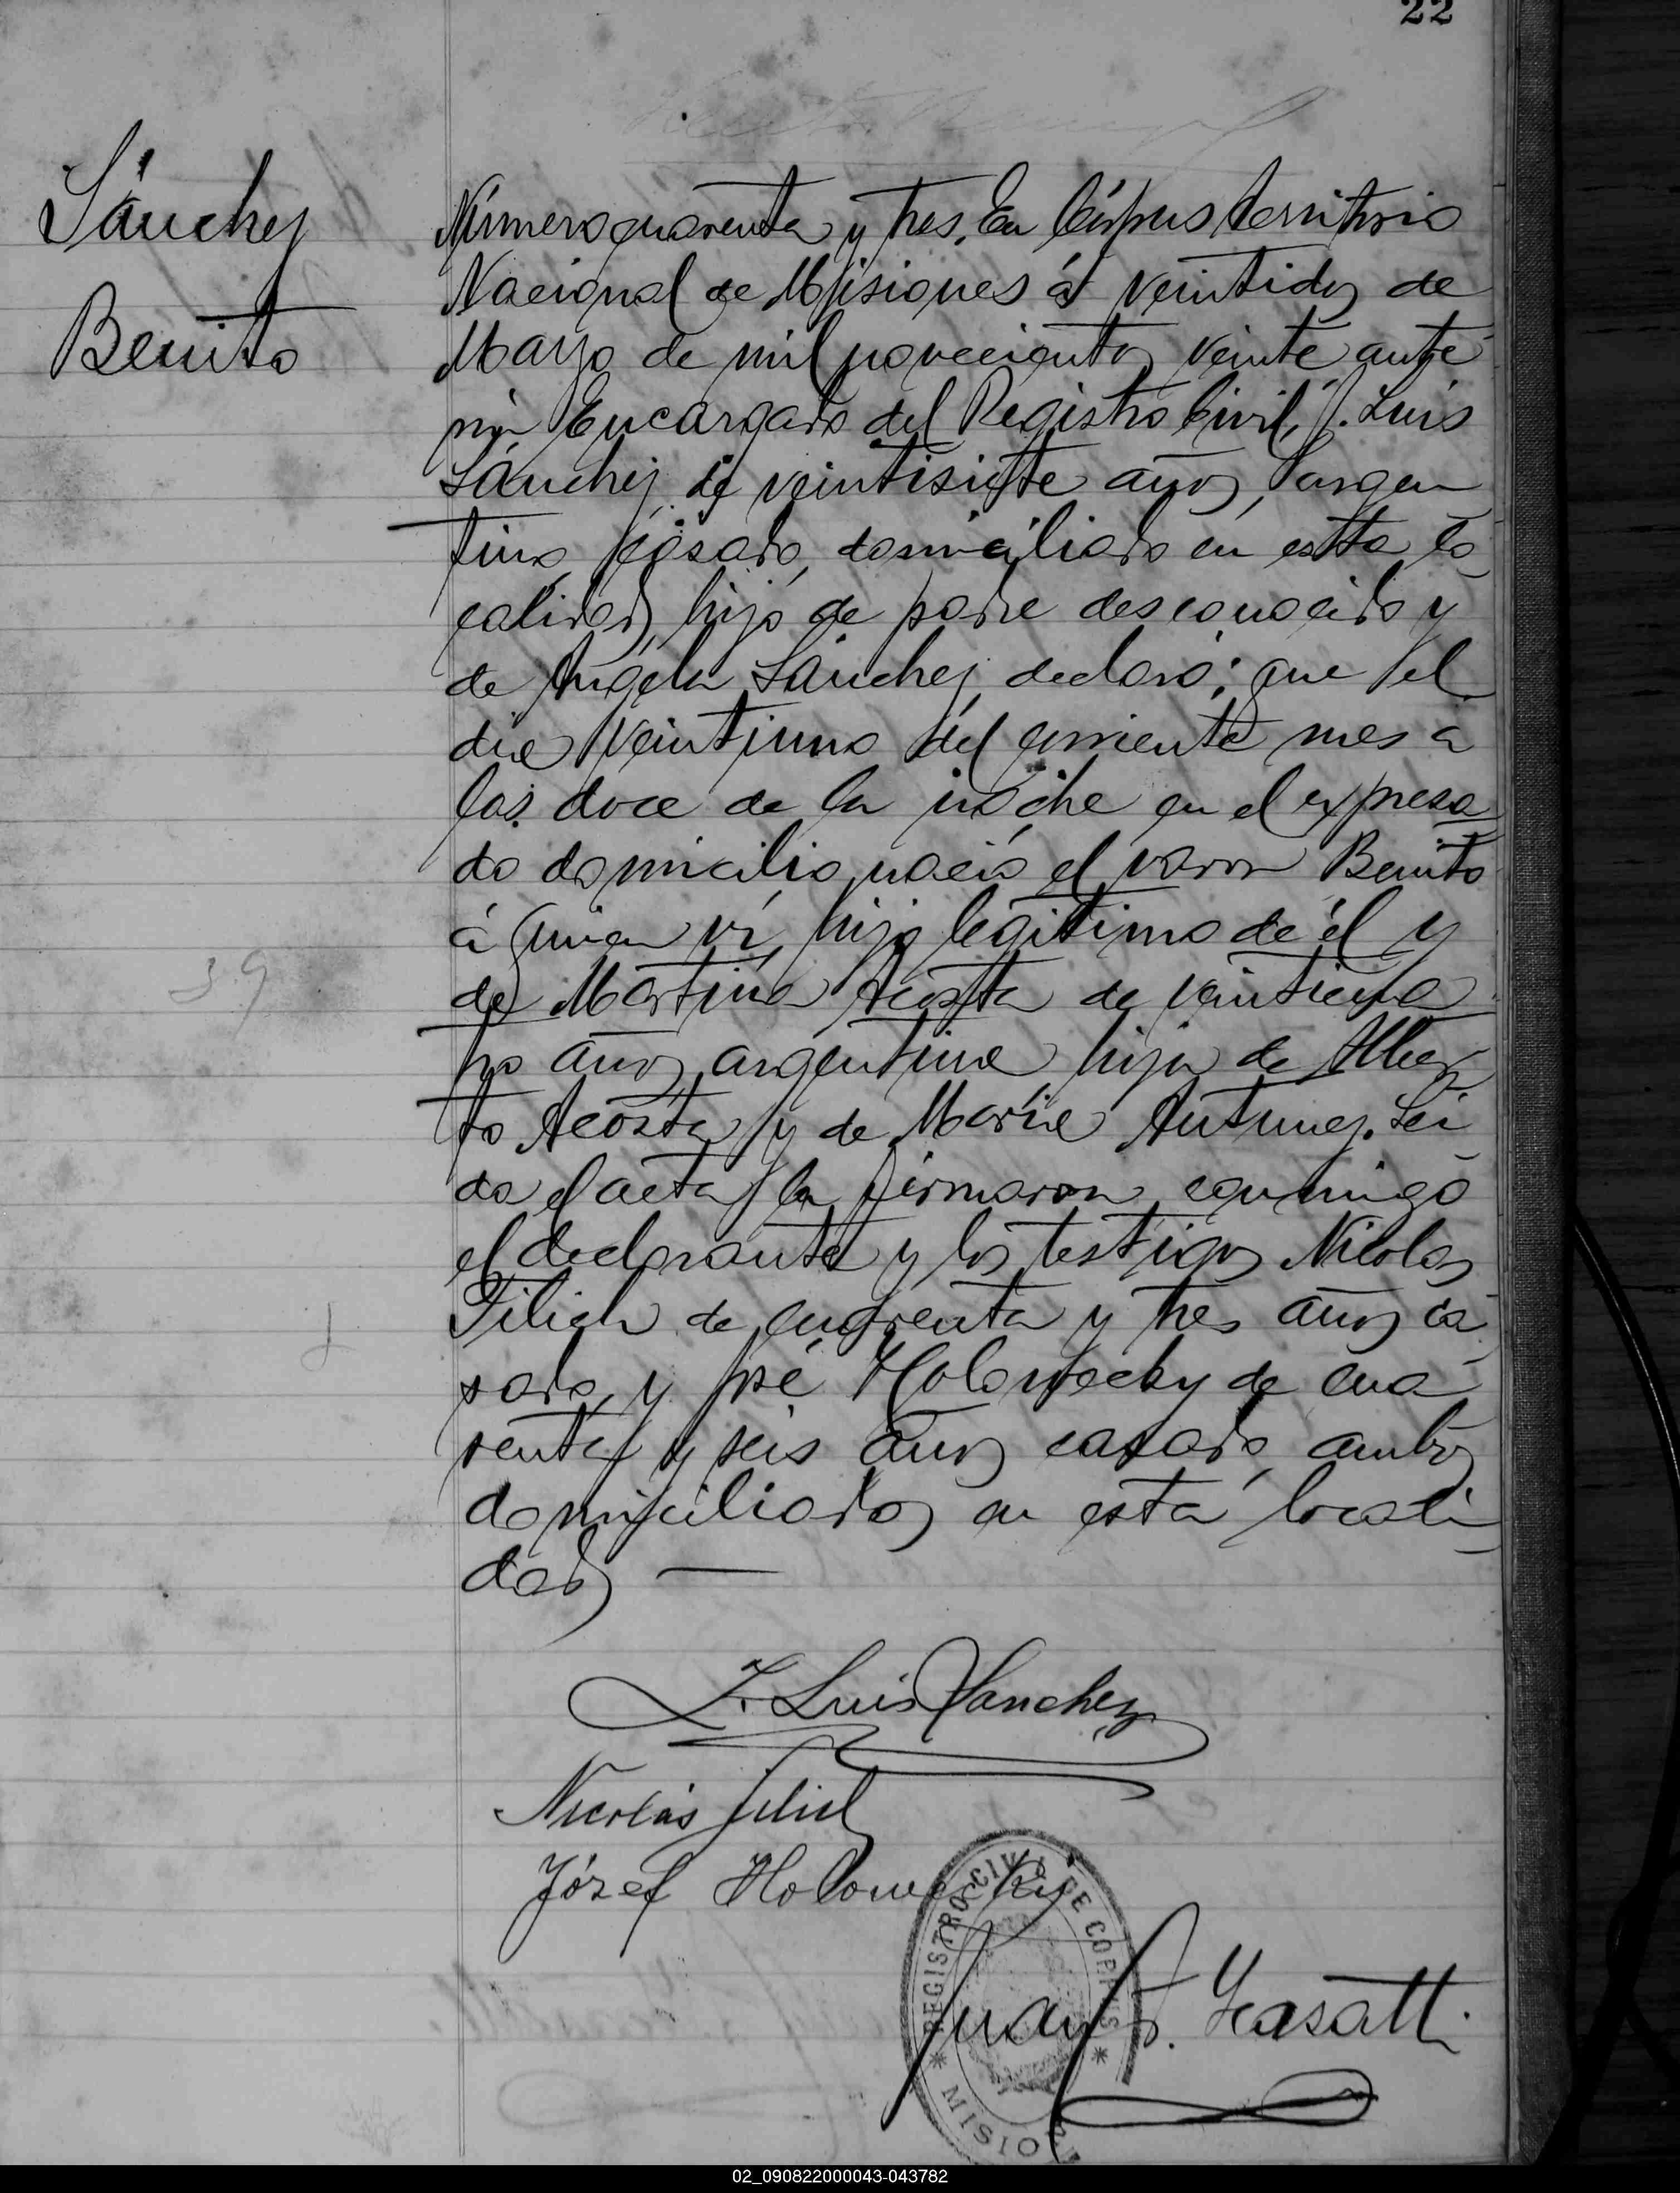 22
Sánchez
Benito
Número cuarenta y tres. En Córpus territorio
Nacional de Misiones á veintidos de
Mayo de mil novecientos veinte ante
mi, Encargado del Registro Civil, J. Luis
Sánchez de veintisiete años, argen
tino, casado, domiciliado en esta lo
calidad, hijo de padre desconocido y
de Angela Sánchez, declaró: que el
dia veintiuno del corriente mes a
las doce de la noche en el expresa
do domicilio nació el varon Benito
á quien ví, hijo legitimo de él y
de Martina Acosta de veinticua
tro años argentina hija de Alber
to Acosta y de María Antunez. Lei
da el acta la firmaron conmigo
el declarante y los testigos Nicolas
Filich de cuarenta y tres años ca
sado, y José Holowecky de cua
renta y seis años casado, ambos
domiciliados en esta locali
dad —
J. Luis Sanchez
Nicolás Filich
Józef Holowecky
REGISTRO CIVIL DE CORPUS
* MISIONES *
Juan
02_090822000043-043782